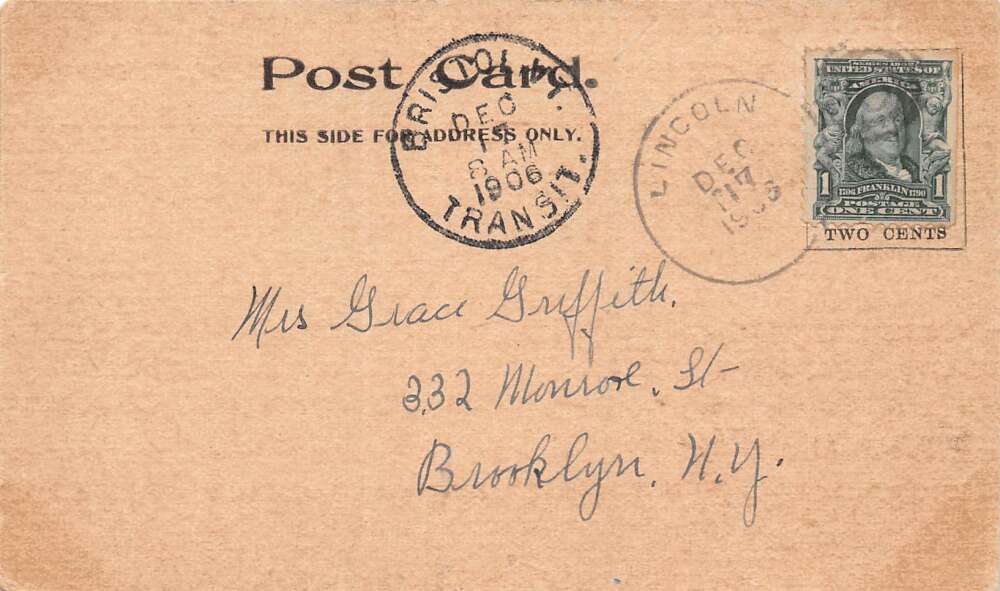 Post Card.
THIS SIDE FOR ADDRESS ONLY.
BRISTOL, VT.
DEC
17
8 AM
1906
TRANSIT.
LINCOLN
DEC
17
1906
SERIES 1902
UNITED STATES OF
AMERICA
1 1706 FRANKLIN 1790 1
POSTAGE
ONE CENT
TWO CENTS
Mrs Grace Griffith.
332 Monroe. St
Brooklyn, N.Y.